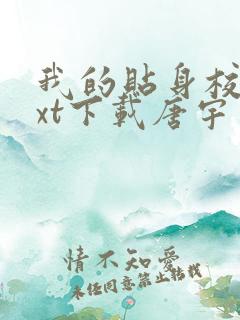 我的貼身校
xt下載唐宇
情不知愛
未任同意禁止转载